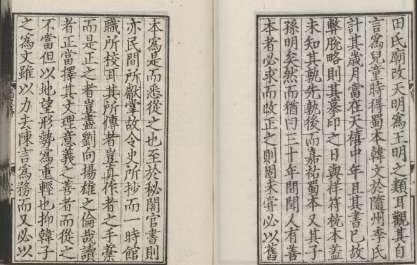 田氏廟改天明爲王明之類耳觀其自
言爲兒童時得蜀本韓文於隨州李氏
計其歲月當在天禧中年且其書已故
弊脫略則其摹印之日與祥符杭本蓋
未知其孰先孰後而嘉祐蜀本又其子
孫明矣然而猶曰三十年間聞人有善
本者必求而改正之則固未嘗必以舊
本爲是而悉從之也至於秘閣官書則
亦民間所獻掌故令史所抄而一時館
職所校耳其所傳者豈真作者之手藁
而是正之者豈盡劉向揚雄之倫哉讀
者正當擇其文理意義之善者而從之
不當但以地望形勢爲重輕也抑韓子
之爲文雖以力去陳言爲務而又必以